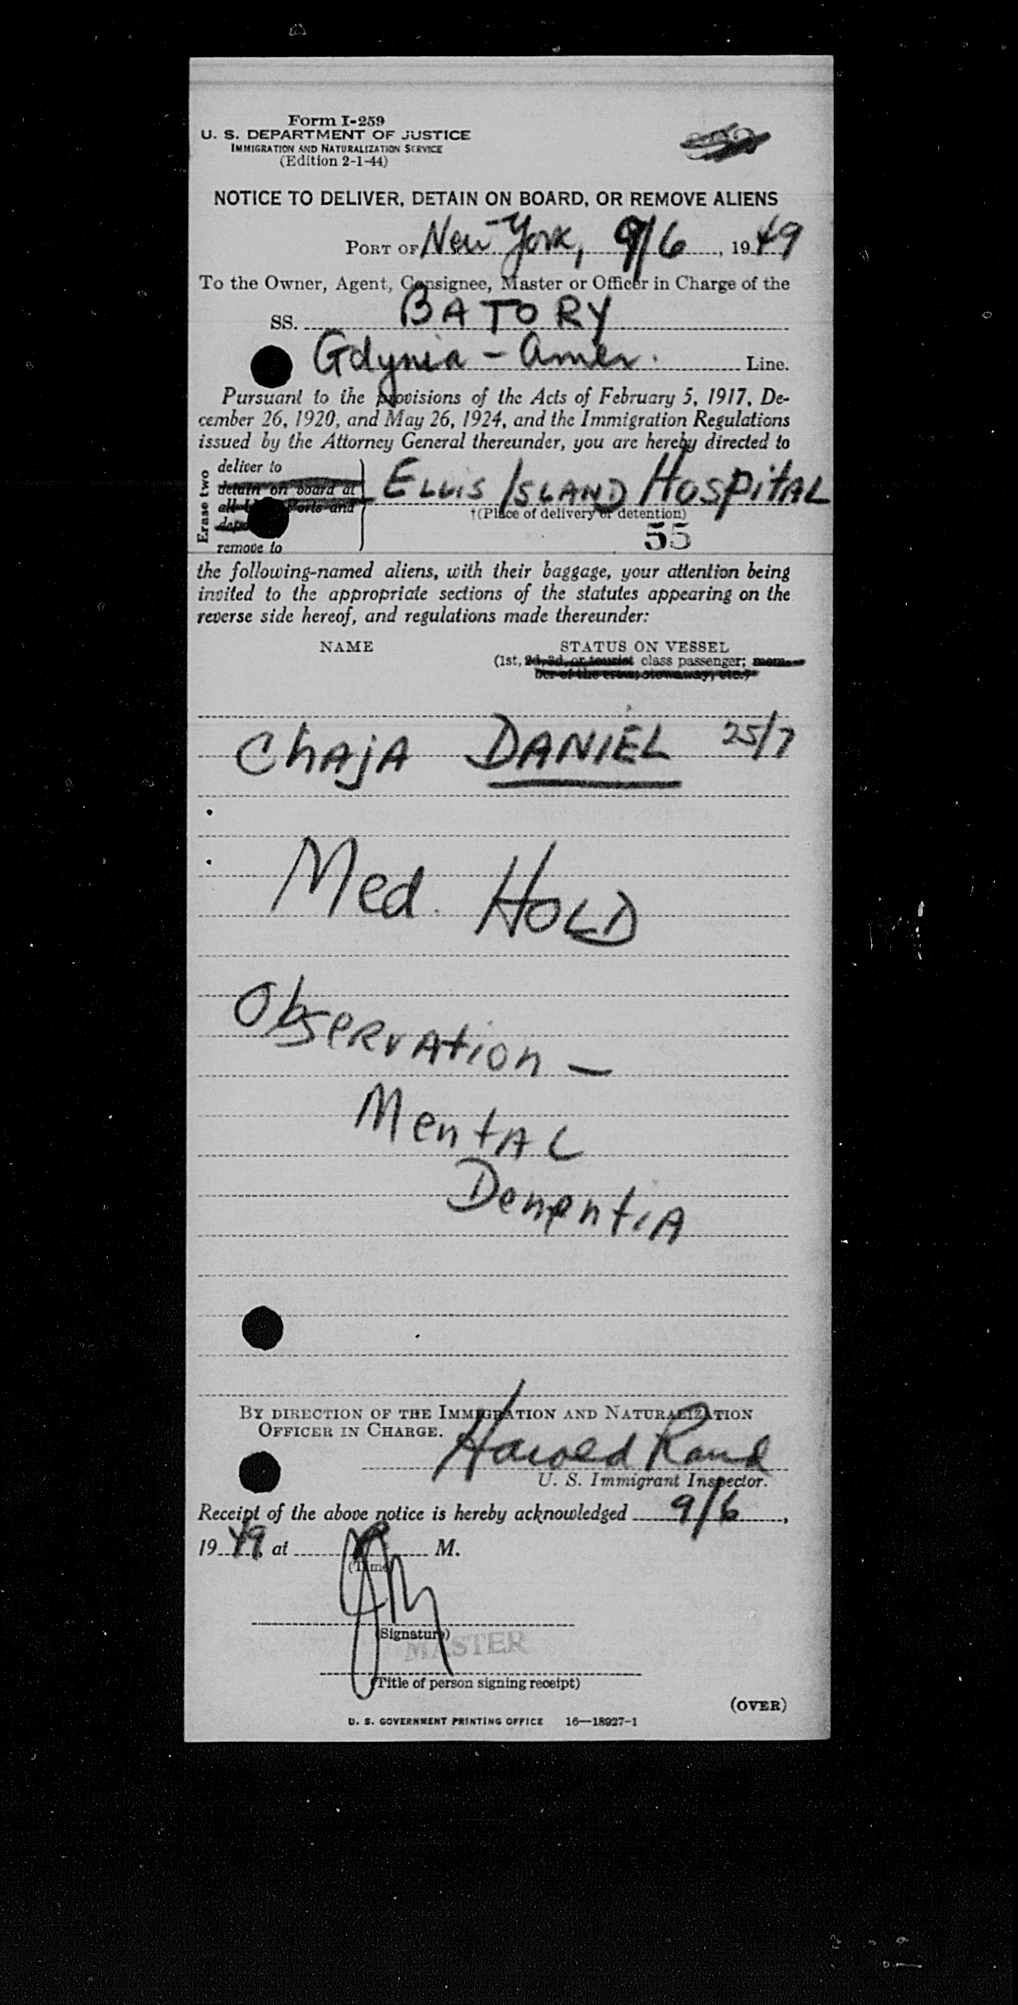 Form I-259
U. S. DEPARTMENT OF JUSTICE
IMMIGRATION AND NATURALIZATION SERVICE
(Edition 2-1-44)
NOTICE TO DELIVER, DETAIN ON BOARD, OR REMOVE ALIENS
PORT OF New York, 9/6, 1949
To the Owner, Agent, Consignee, Master or Officer in Charge of the
SS. BATORY
Gdynia - Amer. Line.
Pursuant to the provisions of the Acts of February 5, 1917, De-
cember 26, 1920, and May 26, 1924, and the Immigration Regulations
issued by the Attorney General thereunder, you are hereby directed to
Erase two
deliver to
detain on board at
all Ports and
remove to
ELLIS ISLAND HOSPITAL
†(Place of delivery or detention)
55
the following-named aliens, with their baggage, your attention being
invited to the appropriate sections of the statutes appearing on the
reverse side hereof, and regulations made thereunder:
NAME STATUS ON VESSEL
(1st, 2d, 3d, or tourist class passenger; mem-
ber of the crew, stowaway, etc.)
ChAjA DANIEL 25/7
Med. HOLD
ObseRvAtion —
MentAL
DementiA
BY DIRECTION OF THE IMMIGRATION AND NATURALIZATION
OFFICER IN CHARGE.
Harold Rand
U. S. Immigrant Inspector.
Receipt of the above notice is hereby acknowledged 9/6,
1949, at P M.
(Time)
(Signature)
MASTER
(Title of person signing receipt)
(OVER)
U. S. GOVERNMENT PRINTING OFFICE 16—18927-1